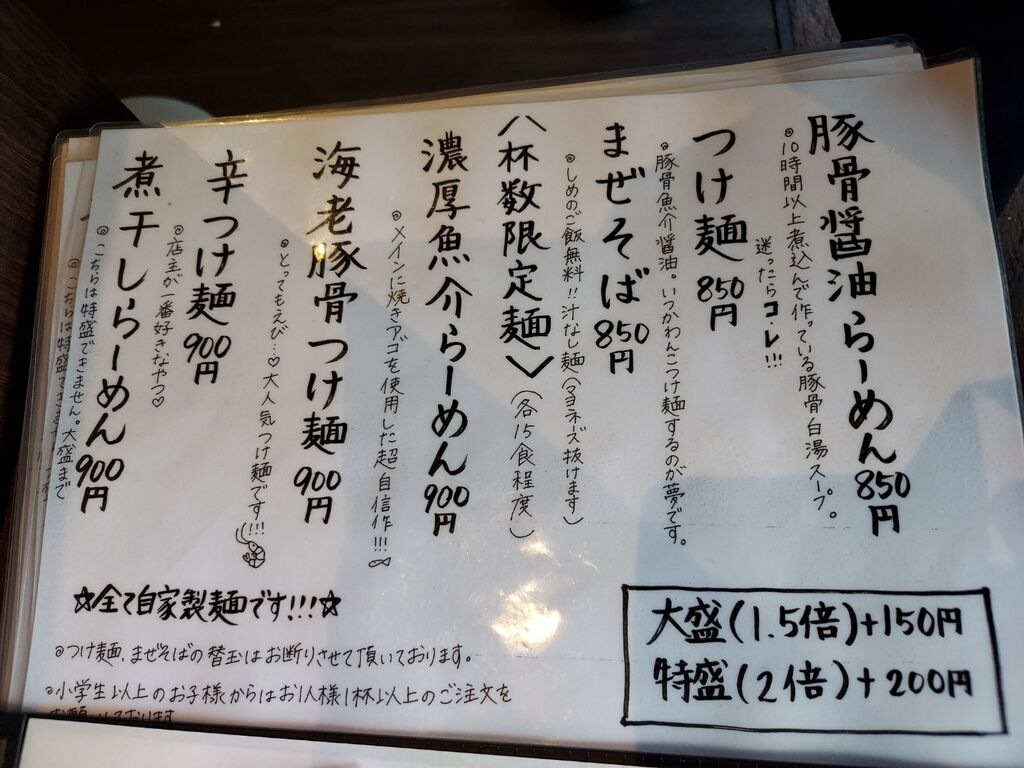 豚骨醤油らーめん 850円
◎10時間以上煮込んで作っている豚骨白湯スープ。
迷ったらコ・レ!!!
つけ麺 850円
◎豚骨魚介醤油。いつかわんこつけ麺するのが夢です。
まぜそば 850円
◎しめのご飯無料!!汁なし麺(マヨネーズ抜けます)
〈杯数限定麺〉(各15食程度)
濃厚魚介らーめん 900円
◎メインに焼きアゴを使用した超自信作!!!
海老豚骨つけ麺 900円
◎とってもえび…♡大人気つけ麺です!!!
辛つけ麺 900円
◎店主が一番好きなやつ♡
煮干しらーめん 900円
◎こちらは特盛できません。大盛まで
◎こちらは特盛で
☆全て自家製麺です!!!☆
◎つけ麺、まぜそばの替玉はお断りさせて頂いております。
◎小学生以上のお子様からはお1人様1杯以上のご注文を
お願いしております
大盛(1.5倍)+150円
特盛(2倍)+200円